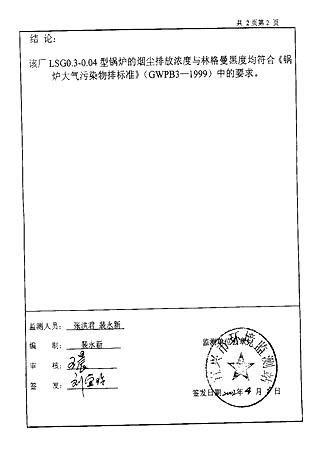 共 2 页第 2 页
结 论：
该厂 LSG0.3-0.04 型锅炉的烟尘排放浓度与林格曼黑度均符合《锅
炉大气污染物排标准》（GWPB3—1999）中的要求。
监测人员： 张洪君 裴永新
编 制： 裴永新
监测单位
审 核：
签 发：
签发日期 2002 年 4 月 日
宜兴市环境监测站